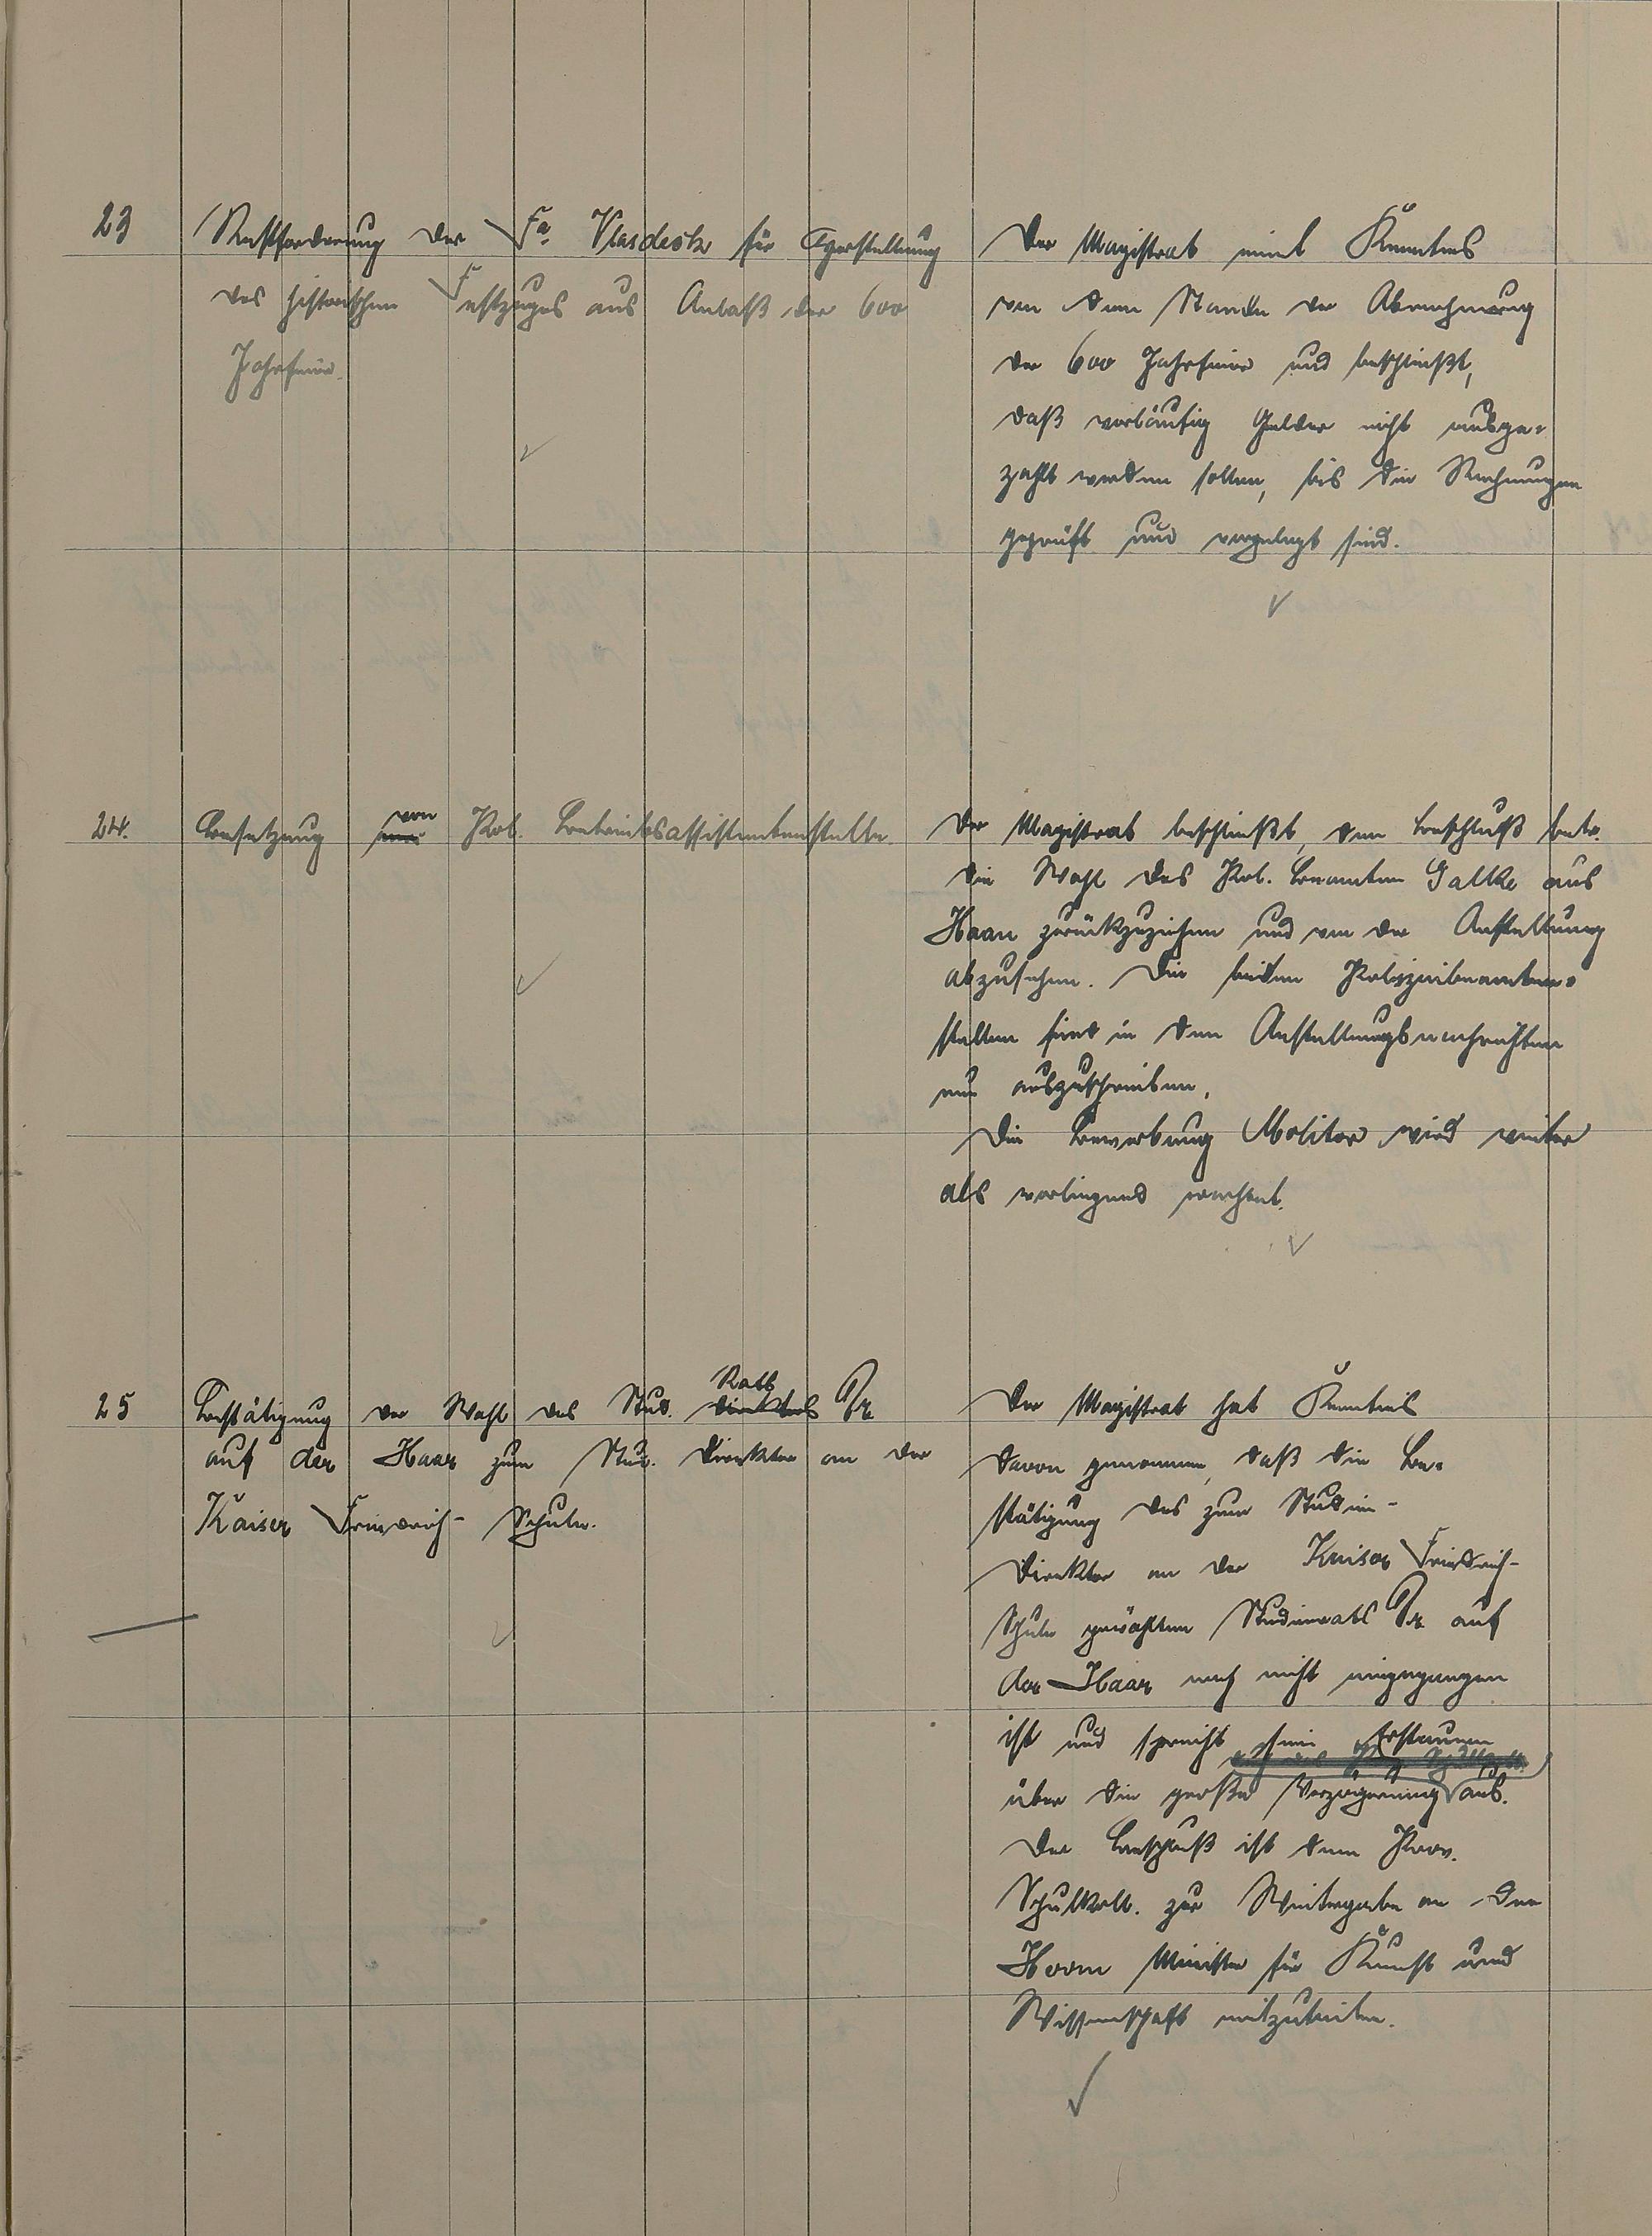 23
Restforderung der Fa. Vlasdeck für Herstellung
des historischen Festzuges aus Anlaß der 600
Jahrfeier.
Der Magistrat nimt Kenntnis
von dem Stande der Abrechnung
der 600 Jahrfeier und beschließt,
daß vorläufig Gelder nicht ausge-
zahlt werden sollen, bis die Rechnungen
geprüft und vorgelegt sind.
24.
Besetzung von Pol. Betriebsassistentenstellen.
Der Magistrat beschließt, den Beschluß betr.
die Wahl des Pol. Beamten Galke aus
Haan zurückzuziehen und von der Anstellung
abzusehen. Die beiden Polizeibeamten-
stellen sind in den Anstellungsnachrichten
neu auszuschreiben.
Die Bewerbung Molitor wird weiter
als vorliegend erachtet.
25
Bestätigung der Wahl des Stud. Rats Dr.
auf der Haar zum Stud. Direktor an der
Kaiser Friedrich- Schule.
Der Magistrat hat Kenntnis
davon genommen, daß die Be-
stätigung des zum Studien-
direktor an der Kaiser Friedrich-
Schule gewählten Studienrats Dr. auf
der Haar noch nicht eingegangen
ist und spricht sein Erstaunen
über die große Verzögerung aus.
Der Beschluß ist dem Prov.
Schulkoll. zur Weitergabe an den
Herrn Minister für Kunst und
Wissenschaft mitzuteilen.